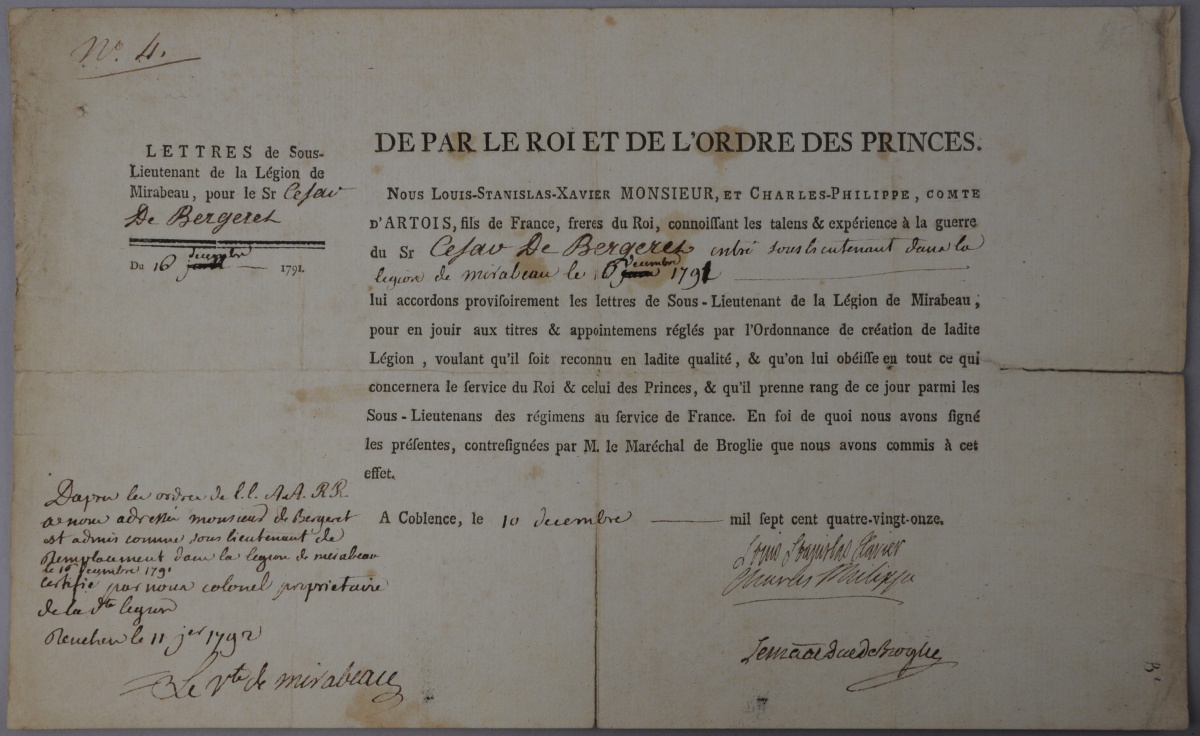 No. 4.
LETTRES de Sous-
Lieutenant de la Légion de
Mirabeau, pour le Sr Cesar
De Bergeret
Du 16 decembre 1791.
DE PAR LE ROI ET DE L'ORDRE DES PRINCES.
NOUS LOUIS-STANISLAS-XAVIER MONSIEUR, ET CHARLES-PHILIPPE, COMTE
D'ARTOIS, fils de France, freres du Roi, connoissant les talens & expérience à la guerre
du Sr Cesar De Bergeret entré sous lieutenant dans la
legion de mirabeau le decembre 1791
lui accordons provisoirement les lettres de Sous-Lieutenant de la Légion de Mirabeau,
pour en jouir aux titres & appointemens réglés par l'Ordonnance de création de ladite
Légion, voulant qu'il soit reconnu en ladite qualité, & qu'on lui obéisse en tout ce qui
concernera le service du Roi & celui des Princes, & qu'il prenne rang de ce jour parmi les
Sous-Lieutenans des régimens au service de France. En foi de quoi nous avons signé
les présentes, contresignées par M. le Maréchal de Broglie que nous avons commis à cet
effet.
A Coblence, le 10 decembre mil sept cent quatre-vingt-onze.
Louis Stanislas Xavier
Charles Philippe
Le mal duc de Broglie
Dapres les ordres de L.L. A.A. R.R.
a nous adressés monsieur de Bergeret
est admis comme sous lieutenant de
Remplacement dans la legion de mirabeau
le 10 decembre 1791
certifié par nous colonel proprietaire
de la dte legion
Renchen le 11 jer 1792
Le vte de mirabeau